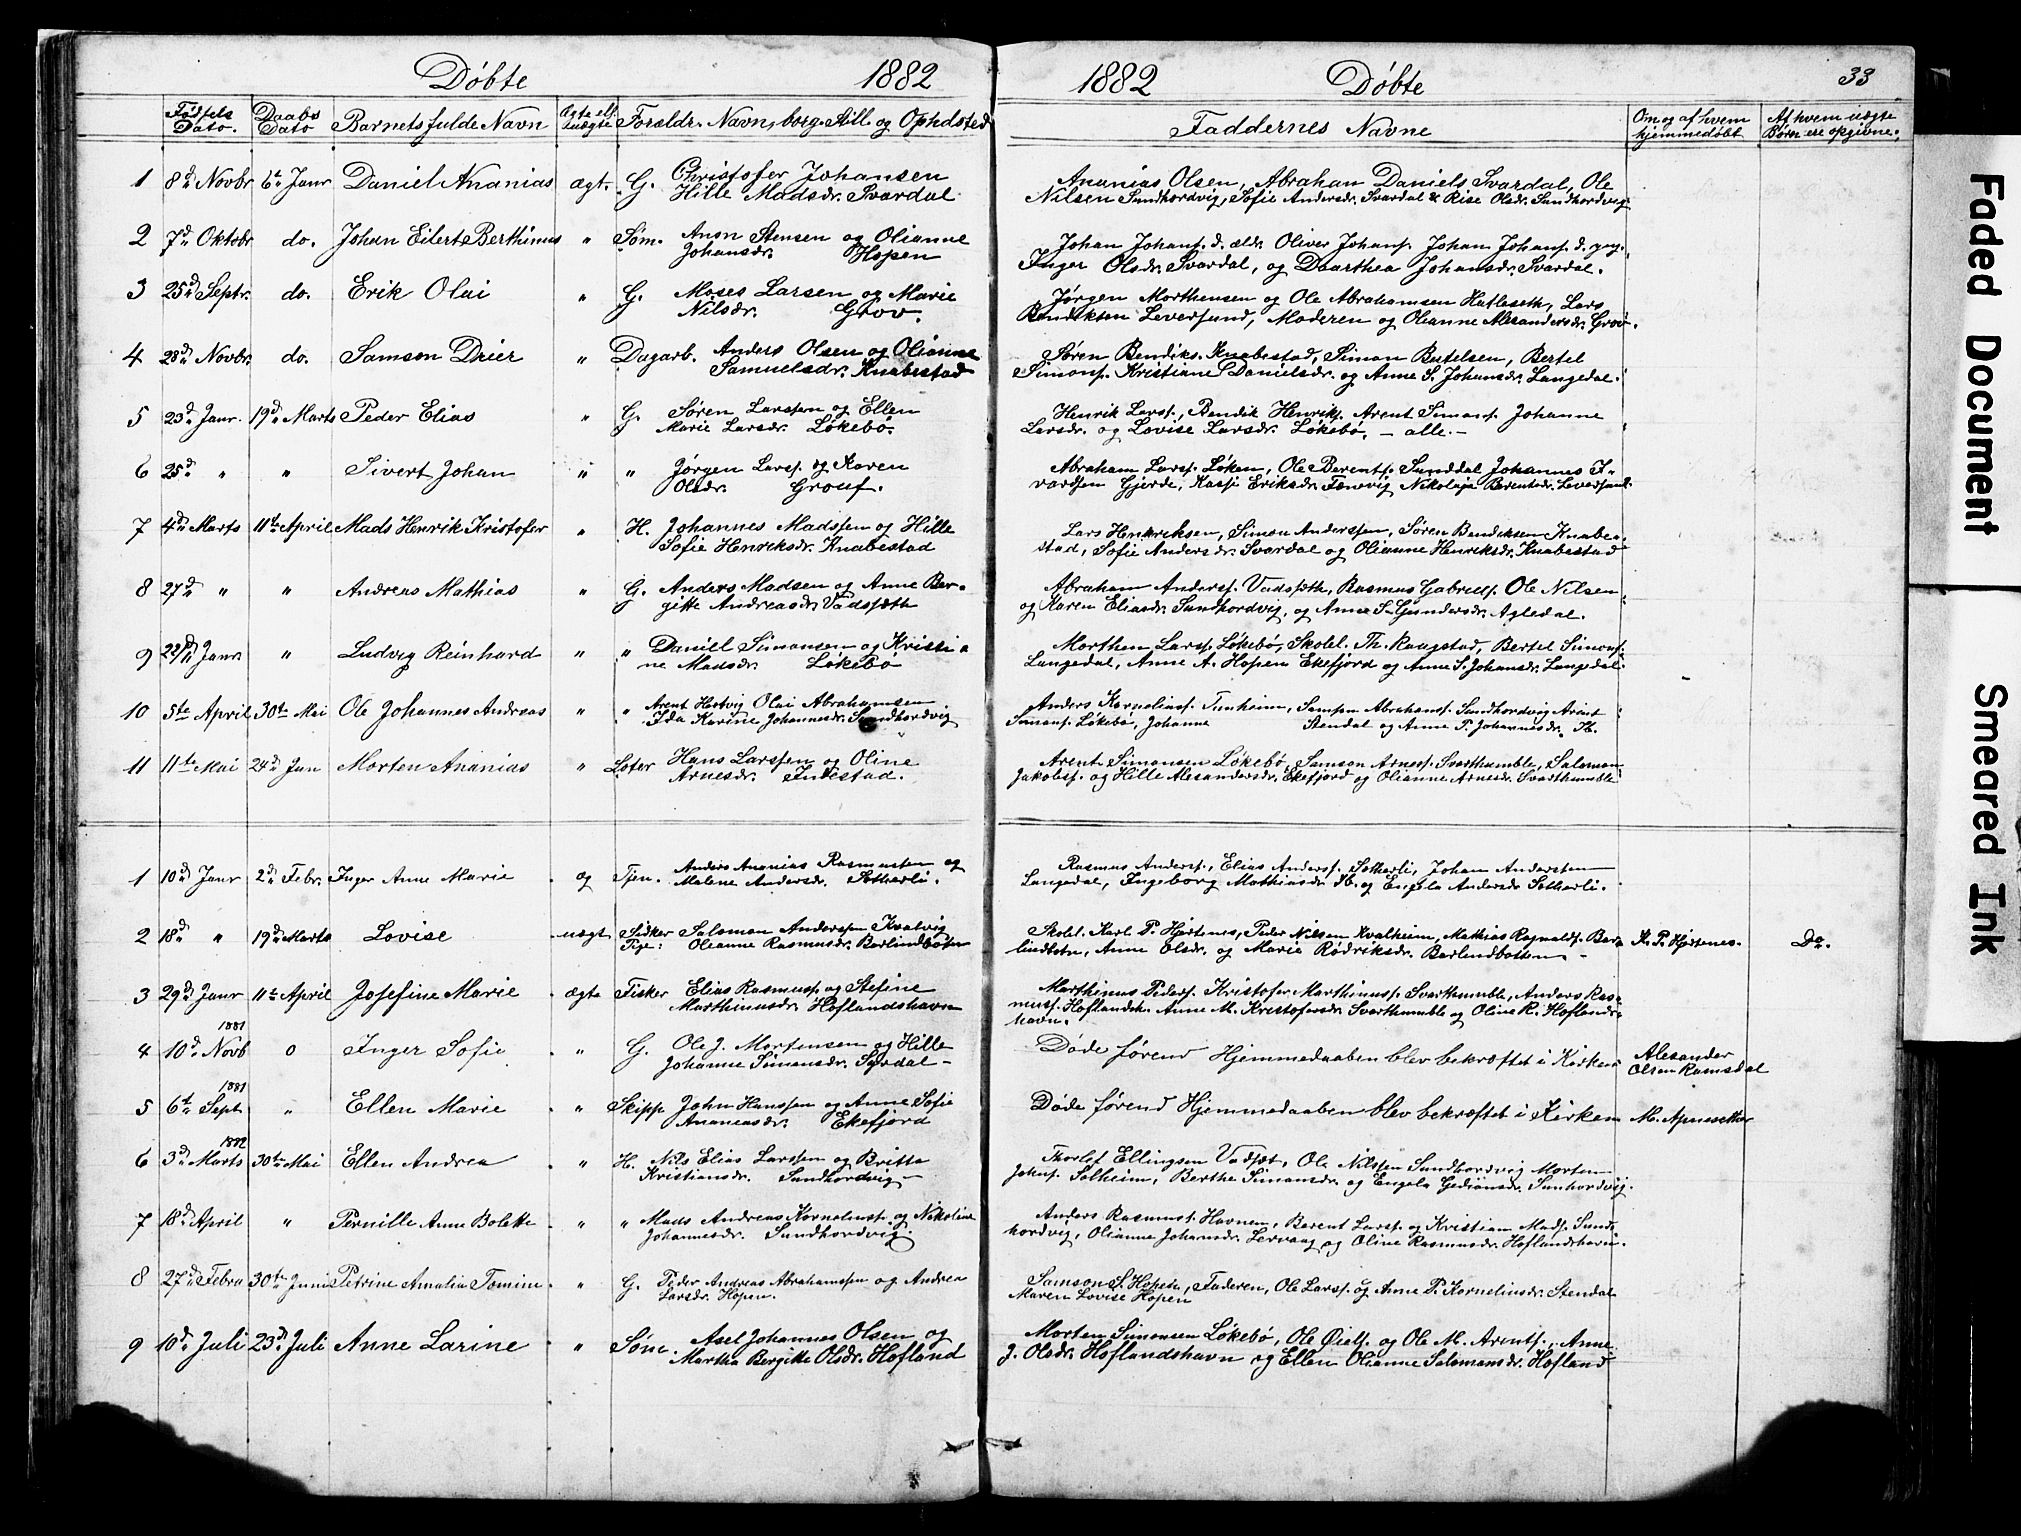 Døbte 1882
1882 Døbte 33
Fødsels Dato. Daabs Dato Barnets fulde Navn Ægte ell. Uægte Forældr. Navn, borg. Still. og Opholdsted
Faddernes Navne Om og af hvem hjemmedøbt Af hvem uægte Børn ere opgivne.
1 8d Novbr 6te Janr Daniel Ananias ægt. G. Christofer Johansen
Hille Madsdr. Svardal
Ananias Olsen, Abraham Daniels. Svardal, Ole
Nilsen Sundhordvig, Sofie Andersdr. Svardal & Rise Olsdr. Sundhordvig
2 7d Oktobr do. Johan Eilert Berthinus " Søm. Anon Stensen og Olianne
Johansdr. Hopen
Johan Johans. d. æld. Oliver Johans. Johan Johans. d. yng.
Inger Olsdr. Svardal, og Daarthea Johansdr. Svardal.
3 25d Septr. do. Erik Olai " G. Moses Larsen og Marie
Nilsdr. Grov.
Jørgen Morthensen og Ole Abrahamsen Hatleseth, Lars
Bendikten Leversund, Moderen og Olianne Alexandersdr. Grov.
4 28d Novbr. do. Samson Drier " Dagarb. Anders Olsen og Olianne
Samuelsdr. Knabestad
Søren Bendiks. Knabestad, Simon Bertelsen, Bertel
Simons. Kristiane Danielsdr. og Anne S. Johansdr. Langedal.
5 23d Janr. 19d Marts Peder Elias " G. Søren Larssen og Ellen
Marie Larsdr. Løkebø.
Henrik Larss., Bendik Henriks. Arent Simons. Johanne
Larsdr. og Lovise Larsdr. Løkebø. - alle. -
6 25d " " Sivert Johan " " Jørgen Larss. og Karen
Olsdr. Grouf.
Abraham Larss. Løken, Ole Berents. Sunddal Johannes I-
vardsen Gjerde, Eriksdr. Nikolaja Berentsdr. Leversund.
7 4d Marts 11te April Mads Henrik Kristofer " H. Johannes Madssen og Hille
Sofie Henriksdr. Knabestad
Lars Henriksen, Simon Anderssen, Søren Bendiksen Knabe-
stad, Sofie Andersdr. Svardal og Olianne Henriksdr. Knabestad
8 27d " " Andreas Mathias " G. Anders Madsen og Anne Ber-
gitte Andreasdr. Vadsæth
Abraham Anderss. Vadsæth, Rasmus Gabriels. Ole Nilsen
og Karen Eliasdr. Sundhordvig, og Anne S. Gundersdr. Agledal.
9 22d Janr. " Ludvig Reinhard " " Daniel Simonsen og Kristi-
ne Madsdr. Løkebø
Morthen Larss. Løkebø, Skolel. Th. Raagstad, Bertel Simons.
Langedal, Anne A. Hopen Ekefjord og Anne S. Johansdr. Langedal.
10 5te April 30te Mai Ole Johannes Andreas " " Arent Hartvig Olai Abrahamsen
Ida Karine Johannesdr. Sundhordvig
Anders Kornelius. Tunheim, Samson Abrahams. Sundhordvig Arent
Simons. Løkebø, Johanne Stendal og Anne P. Johannesdr. St.
11 11te Mai 24d Jun Morten Ananias " Loter Hans Larssen og Oline
Arnesdr. Indestad.
Arent Simonsen Løkebø Samson Arness. Svarthumble, Salomon
Jakobss. og Hille Alexandersdr. Ekefjord og Olianne Arnesdr. Svarthumble
1 10d Janr 2d Febr. Inger Anne Marie og Tjen. Anders Ananias Rasmussen og
Malene Andersdr. Sætherli.
Rasmus Anderss., Elias Anderss. Sætherli, Johan Anderssen
Langedal, Ingeborg Mathiasdr. Ib. og Engela Andersdr. Sætherli.
2 18d " 19d Marts Lovise uægt Fisker Salomon Anderssen Kvalvig
Pige: Olianne Rasmusdr. Barlindbotten
Skolel. Karl P. Hjertenes, Peder Nilsen Kvalheim, Mathias Ragnalds. Bar-
lindbotn, Anne Olsdr. og Marie Rødriksdr. Barlendbotten. -
K. P. Hjertenes. Do.
3 29d Janr 11te April Josefine Marie ægte Fisker Elias Rasmuss. og Stefine
Marthinusdr. Hoflandshavn
Marthinus Peders. Kristofer Marthinuss. Svarthumble, Anders Ras-
muss. Hoflandsh. Anne M. Kristofersdr. Svarthumble og Oline R. Hoflands-
havn.
1881
4 10d Novb o Inger Sofie " G. Ole J. Mortensen og Hille
Johanne Simonsdr. Sørdal -
Døde førend Hjemmedaaben blev bekræftet i Kirken
Alexander
Olsen Ramsdal
1881
5 6te Sept " Ellen Marie " Skipp John Hanssen og Anne Sofie
Ananiasdr. Ekefjord
Døde førend Hjemmedaaben blev bekræftet i Kirken
1882
6 3d Marts 30te Mai Ellen Andrea " H. Nils Elias Larssen og Britta
Kristiansdr. Sundhordvig -
Thorlef Ellingsen Vadsæt, Ole Nilssen Sundhordvig Morten
Johns. Solheim, Berthe Simonsdr. og Engela Gedionsdr. Sunhordvig.
7 18d April " Pernille Anna Bolette " " Mads Andreas Korneliuss. og Nikoline
Johannesdr. Sundhordvig.
Anders Rasmuss. Havnen, Berent Larss. og Kristian Mads. Sund-
hordvig, Olianne Johansdr. Lervaag og Oline Rasmusdr. Hoflandshavn.
8 27d Febru 30te Juni Petrine Amalia Tomine " G. Peder Andreas Abrahamssen og Andrea
Larsdr. Hopen.
Samson S. Hopen, Faderen, Ole Larss. og Anne P. Kornelisdr. Stendal
Maren Lovise Hopen
9 10d Juli 23d Juli Anne Larine " Søm. Axel Johannes Olsen og
Martha Bergitte Olsdr. Hofland
Morten Simonsen Løkebø, Ole og Ole M. Arents. Anne
J. Olsdr. Hoflandshavn og Ellen Olianne Salomonsdr. Hofland
Faded Document
Smeared Ink